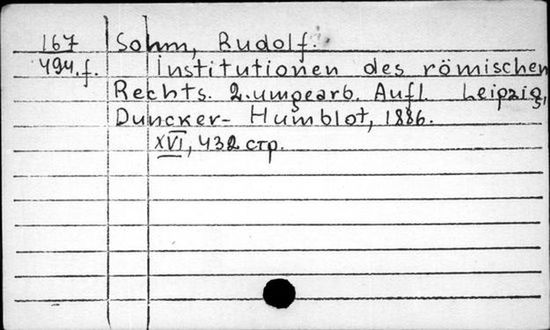 167 Sohm, Rudolf.
494.f. Institutionen des römischen
Rechts. 2.umgearb. Aufl. Leipzig,
Duncker- Humblot, 1886.
XVI, 432 стр.